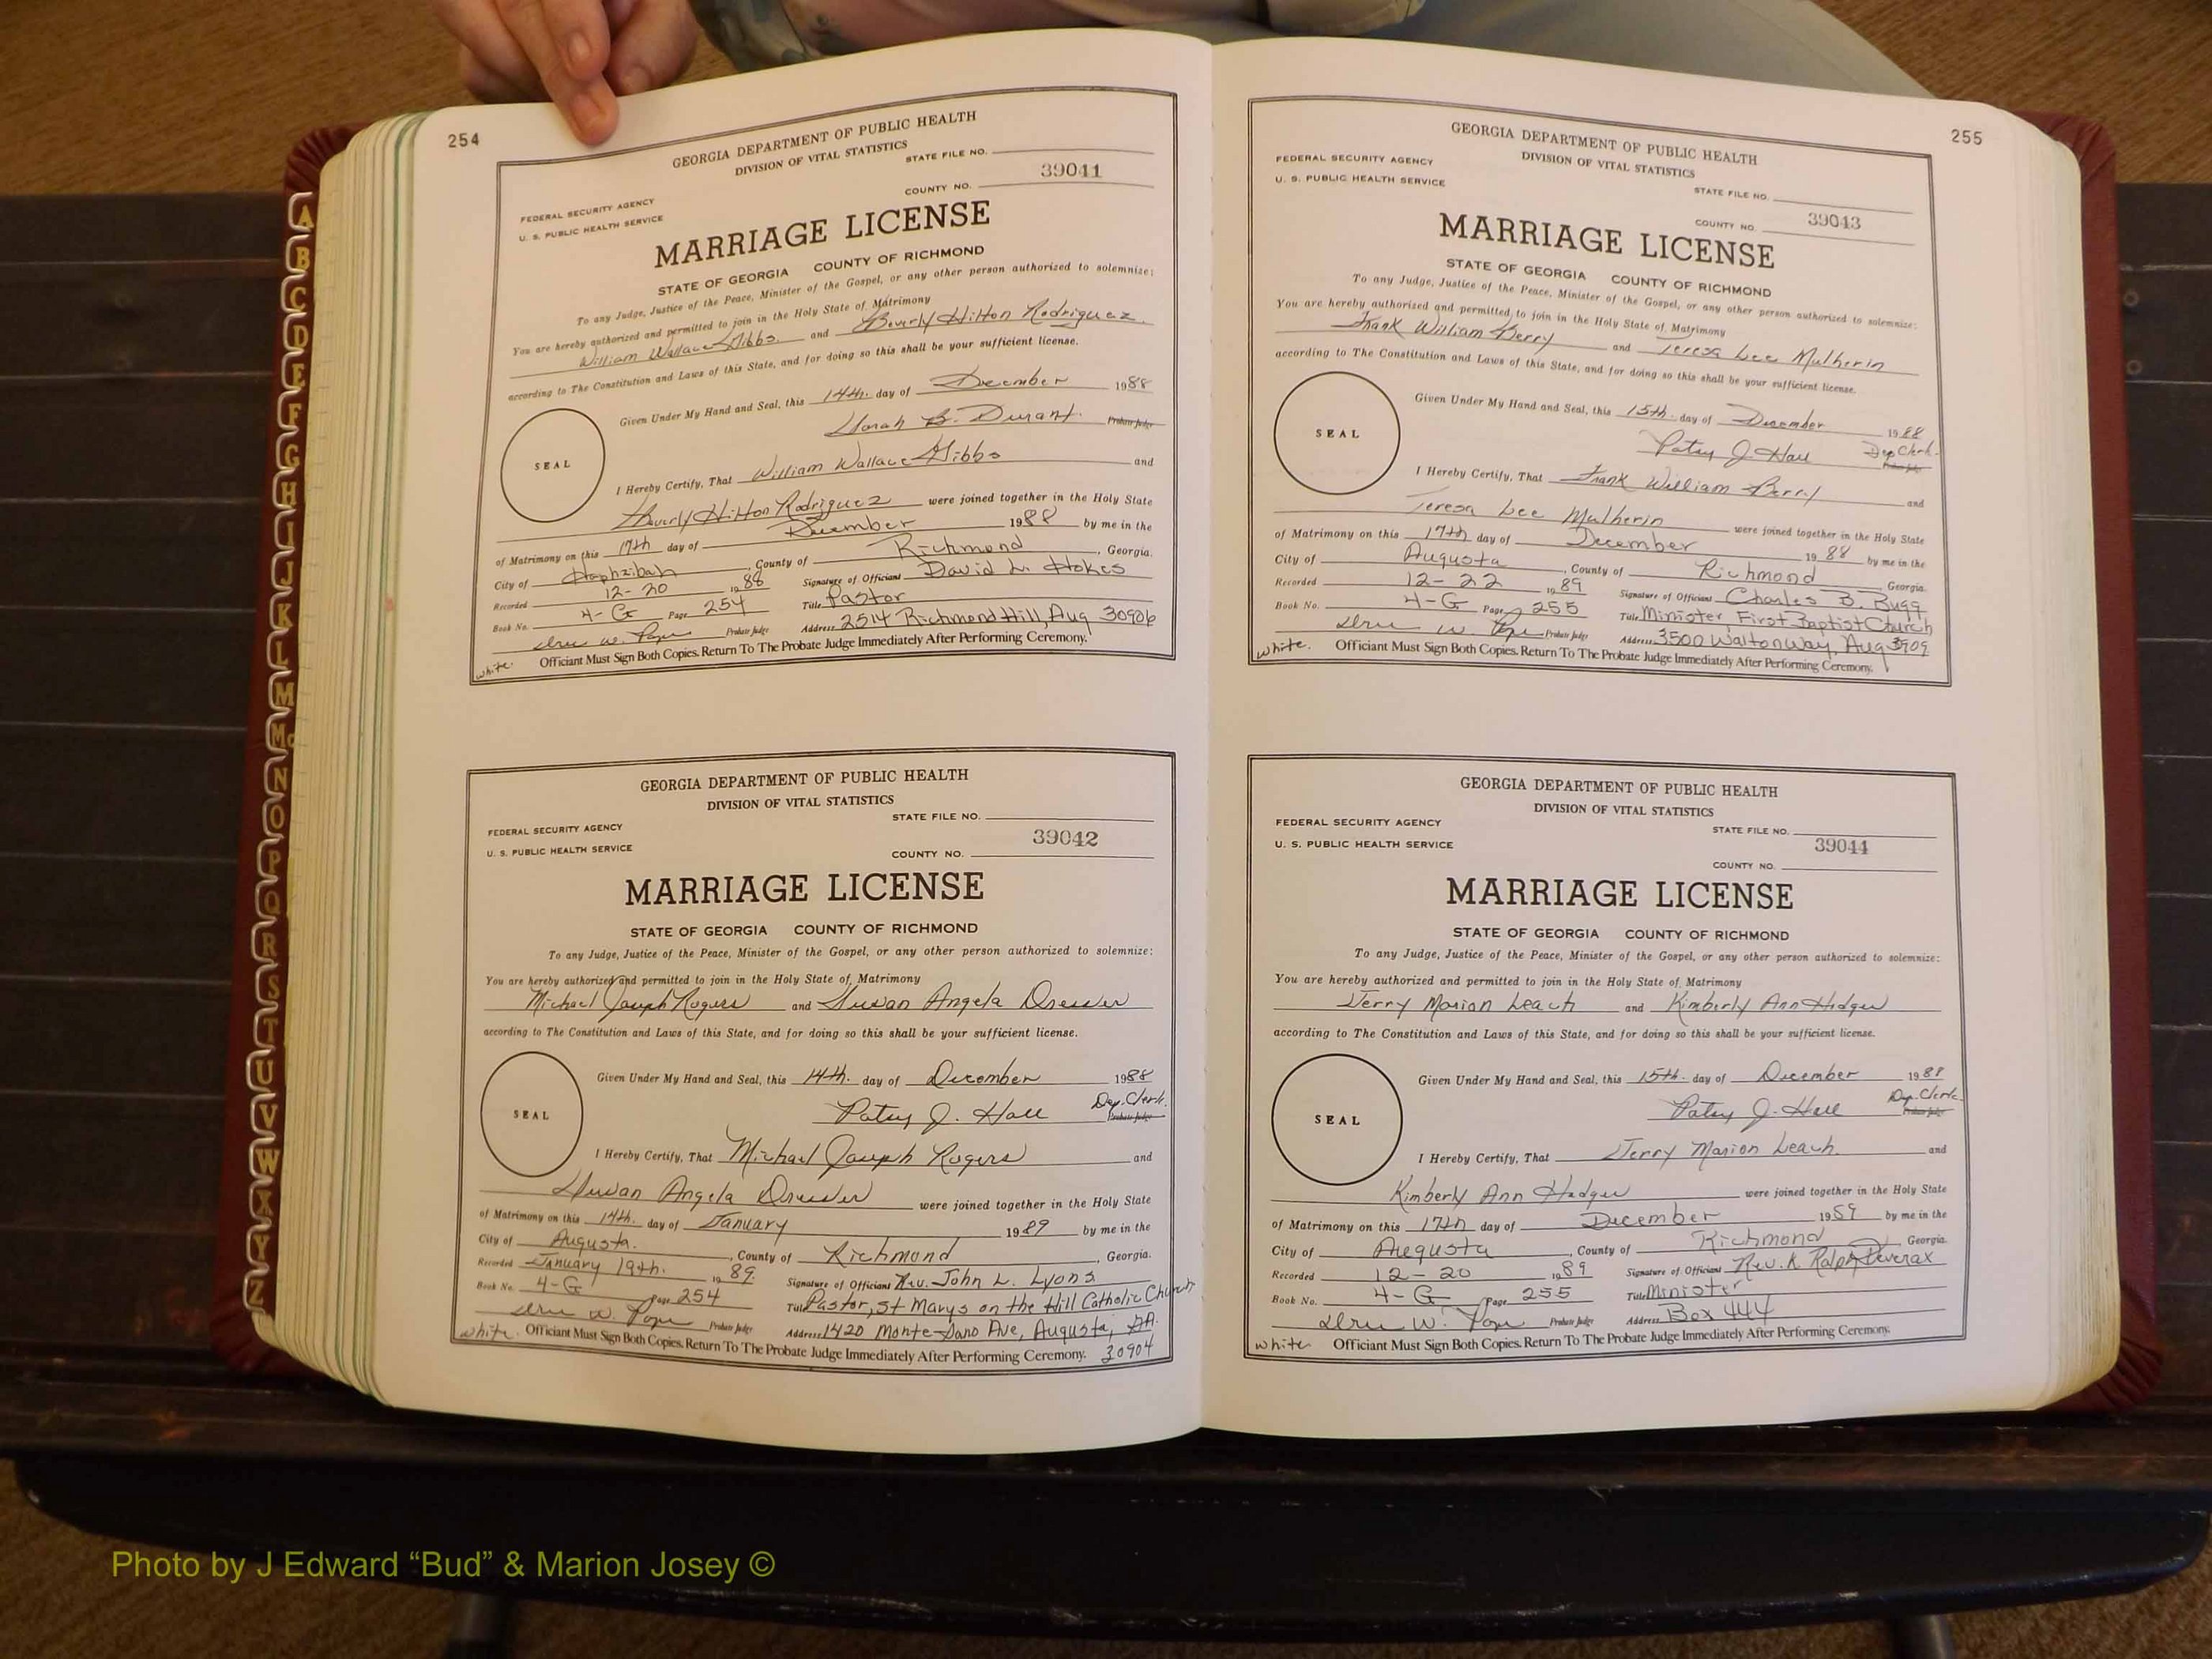 A
B
C
D
E
F
G
H
I
J
K
L
M
Mc
N
O
P
Q
R
S
T
U
V
W
X
Y
Z
254
GEORGIA DEPARTMENT OF PUBLIC HEALTH
DIVISION OF VITAL STATISTICS
STATE FILE NO.
39041
COUNTY NO.
FEDERAL SECURITY AGENCY
U. S. PUBLIC HEALTH SERVICE
MARRIAGE LICENSE
STATE OF GEORGIA COUNTY OF RICHMOND
To any Judge, Justice of the Peace, Minister of the Gospel, or any other person authorized to solemnize:
You are hereby authorized and permitted to join in the Holy State of Matrimony
William Wallace Gibbs and Beverly Hilton Rodriguez
according to The Constitution and Laws of this State, and for doing so this shall be your sufficient license.
Given Under My Hand and Seal, this 14th. day of December 1988
SEAL
Sarah B. Durant Probate Judge
I Hereby Certify, That William Wallace Gibbs and
Beverly Hilton Rodriguez were joined together in the Holy State
of Matrimony on this 17th day of December 1988 by me in the
City of Hephzibah, County of Richmond, Georgia.
Recorded 12-20 1988 Signature of Officiant David L. Hokes
Book No. 4-G Page 254 Title Pastor
Probate Judge Address 2514 Richmond Hill, Aug 30906
white. Officiant Must Sign Both Copies. Return To The Probate Judge Immediately After Performing Ceremony.
GEORGIA DEPARTMENT OF PUBLIC HEALTH
DIVISION OF VITAL STATISTICS
STATE FILE NO.
FEDERAL SECURITY AGENCY
39042
U. S. PUBLIC HEALTH SERVICE
COUNTY NO.
MARRIAGE LICENSE
STATE OF GEORGIA COUNTY OF RICHMOND
To any Judge, Justice of the Peace, Minister of the Gospel, or any other person authorized to solemnize:
You are hereby authorized and permitted to join in the Holy State of Matrimony
Michael Joseph Rogers and Susan Angela Dresser
according to The Constitution and Laws of this State, and for doing so this shall be your sufficient license.
Given Under My Hand and Seal, this 14th. day of December 1988
SEAL
Patsy J. Hall Dep. Clerk. Probate Judge
I Hereby Certify, That Michael Joseph Rogers and
Susan Angela Dresser were joined together in the Holy State
of Matrimony on this 14th. day of January 1989 by me in the
City of Augusta. , County of Richmond, Georgia.
Recorded January 19th. 1989. Signature of Officiant Rev. John L. Lyons
Book No. 4-G Page 254 Title Pastor, St Marys on the Hill Catholic Church
Probate Judge Address 1420 Monte-Sano Ave, Augusta, GA.
white. Officiant Must Sign Both Copies. Return To The Probate Judge Immediately After Performing Ceremony. 30904
255
GEORGIA DEPARTMENT OF PUBLIC HEALTH
FEDERAL SECURITY AGENCY
DIVISION OF VITAL STATISTICS
U. S. PUBLIC HEALTH SERVICE
STATE FILE NO.
39043
COUNTY NO.
MARRIAGE LICENSE
STATE OF GEORGIA COUNTY OF RICHMOND
To any Judge, Justice of the Peace, Minister of the Gospel, or any other person authorized to solemnize:
You are hereby authorized and permitted to join in the Holy State of Matrimony
Frank William Berry and Teresa Lee Mulherin
according to The Constitution and Laws of this State, and for doing so this shall be your sufficient license.
Given Under My Hand and Seal, this 15th. day of December 1988
SEAL
Patsy J. Hall Dep Clerk. Probate Judge
I Hereby Certify, That Frank William Berry and
Teresa Lee Mulherin were joined together in the Holy State
of Matrimony on this 17th day of December 1988 by me in the
City of Augusta, County of Richmond, Georgia.
Recorded 12-22 1989 Signature of Officiant Charles B. Bugg
Book No. 4-G Page 255 Title Minister, First Baptist Church
Probate Judge Address 3500 Walton Way, Aug 30909
white. Officiant Must Sign Both Copies. Return To The Probate Judge Immediately After Performing Ceremony.
GEORGIA DEPARTMENT OF PUBLIC HEALTH
DIVISION OF VITAL STATISTICS
FEDERAL SECURITY AGENCY
STATE FILE NO.
U. S. PUBLIC HEALTH SERVICE
39044
COUNTY NO.
MARRIAGE LICENSE
STATE OF GEORGIA COUNTY OF RICHMOND
To any Judge, Justice of the Peace, Minister of the Gospel, or any other person authorized to solemnize:
You are hereby authorized and permitted to join in the Holy State of Matrimony
Jerry Marion Leach and Kimberly Ann Hodges
according to The Constitution and Laws of this State, and for doing so this shall be your sufficient license.
Given Under My Hand and Seal, this 15th. day of December 1988
SEAL
Patsy J. Hall Dep. Clerk. Probate Judge
I Hereby Certify, That Jerry Marion Leach and
Kimberly Ann Hodges were joined together in the Holy State
of Matrimony on this 17th day of December 1959 by me in the
City of Augusta, County of Richmond, Georgia.
Recorded 12-20 1989 Signature of Officiant Rev. K. Ralph
Book No. 4-G Page 255 Title Minister
Probate Judge Address Box 444
white Officiant Must Sign Both Copies. Return To The Probate Judge Immediately After Performing Ceremony.
Photo by J Edward “Bud” & Marion Josey ©